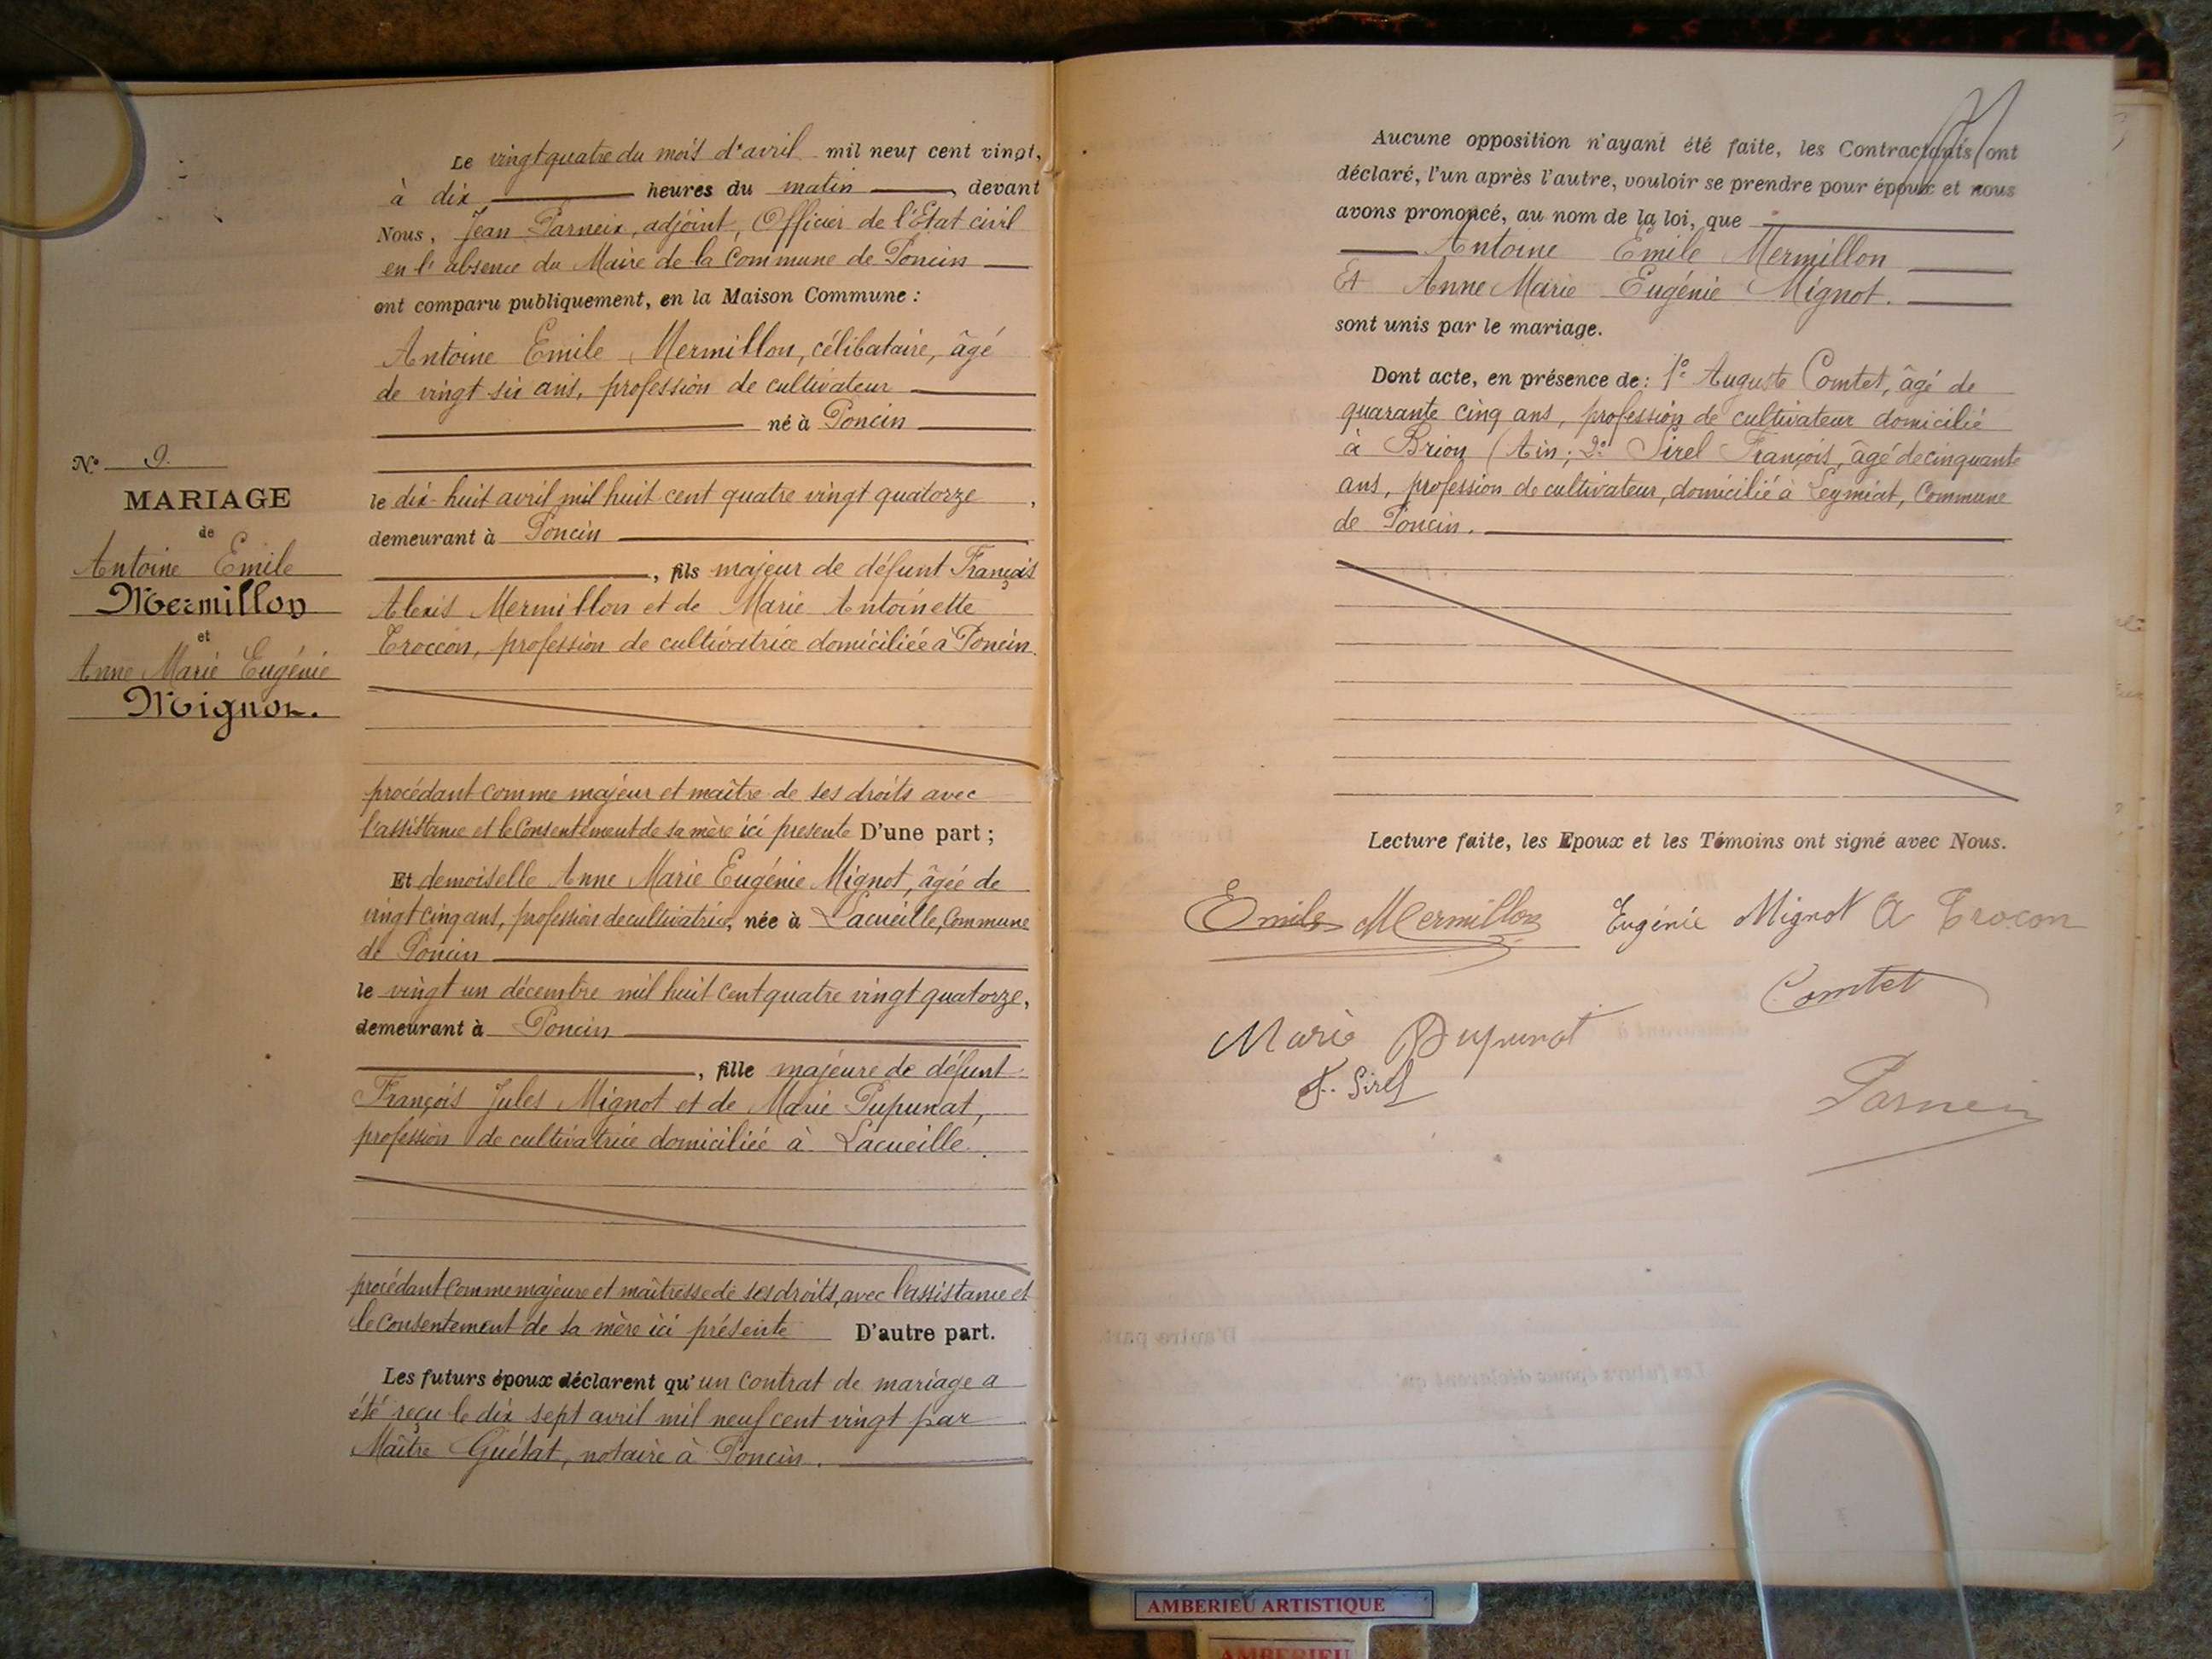 N° 9.
MARIAGE
de
Antoine Emile
Mermillon
et
Anne Marie Eugénie
Mignot.
Le vingt quatre du mois d'avril mil neuf cent vingt,
à dix heures du matin, devant
Nous, Jean Parneix, adjoint, Officier de l'Etat civil
en l'absence du Maire de la Commune de Poncin
ont comparu publiquement, en la Maison Commune :
Antoine Emile Mermillon, célibataire, âgé
de vingt six ans, profession de cultivateur
né à Poncin
le dix-huit avril mil huit cent quatre vingt quatorze,
demeurant à Poncin
, fils majeur de défunt François
Alexis Mermillon et de Marie Antoinette
Troccon, profession de cultivatrice domiciliée à Poncin.
procédant comme majeur et maître de ses droits avec
l'assistance et le Consentement de sa mère ici presente D'une part ;
Et demoiselle Anne Marie Eugénie Mignot, âgée de
vingt cinq ans, profession de cultivatrice, née à Lacueille, Commune
de Poncin
le vingt un décembre mil huit cent quatre vingt quatorze,
demeurant à Poncin
, fille majeure de défunt
François Jules Mignot et de Marie Pupunat,
profession de cultivatrice domiciliée à Lacueille.
procédant comme majeure et maîtresse de ses droits, avec l'assistance et
le consentement de sa mère ici présente D'autre part.
Les futurs époux déclarent qu'un Contrat de mariage a
été reçu le dix sept avril mil neuf cent vingt par
Maître Guétat, notaire à Poncin.
Aucune opposition n'ayant été faite, les Contractants ont
déclaré, l'un après l'autre, vouloir se prendre pour époux et nous
avons prononcé, au nom de la loi, que
Antoine Emile Mermillon
Et Anne Marie Eugénie Mignot.
sont unis par le mariage.
Dont acte, en présence de : 1° Auguste Comtet, âgé de
quarante cinq ans, profession de cultivateur domicilié
à Brion (Ain; 2° Sirel François, âgé de cinquante
ans, profession de cultivateur, domicilié à Leymiat, Commune
de Poncin.
Lecture faite, les Epoux et les Témoins ont signé avec Nous.
Emile Mermillon Eugénie Mignot A Trocon
Comtet
Marie Pupunat
F. Sirel
Parneix
AMBERIEU ARTISTIQUE
AMBERIEU